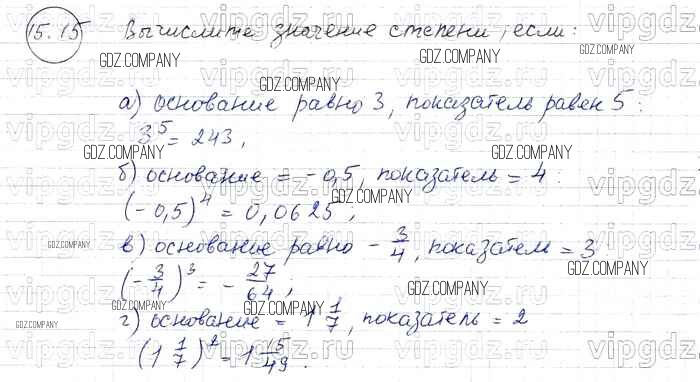 15.15 Вычислите значение степени, если:
GDZ.COMPANY
GDZ.COMPANY
а) основание равно 3, показатель равен 5:
3^5 = 243,
GDZ.COMPANY
GDZ.COMPANY
б) основание = -0,5, показатель = 4:
GDZ.COMPANY
(-0,5)^4 = 0,0625;
GDZ.COMPANY
в) основание равно -3/4, показатель = 3
GDZ.COMPANY
(-3/4)^3 = -27/64;
GDZ.COMPANY
GDZ.COMPANY
г) основание = 1 1/7, показатель = 2
GDZ.COMPANY
(1 1/7)^2 = 1 15/49.
vipgdz.ru